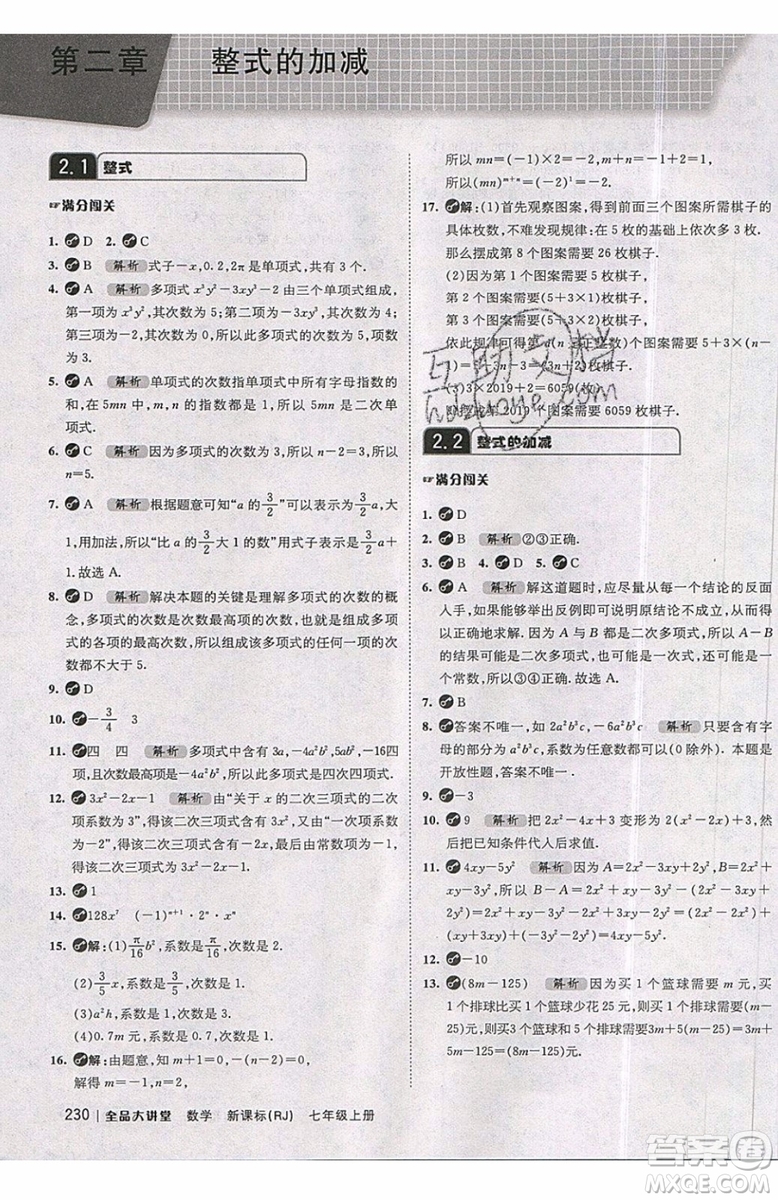 第二章 整式的加减
2.1 整式
☞满分闯关
1. D 2. C
3. B 解析 式子-x,0.2,2π是单项式,共有3个.
4. A 解析 多项式x³y²-3xy³-2由三个单项式组成,
值第一项的次数为5;第二项的次数为4,-2是常数项,
5. A 解析 单项式的次数指单项式中所有字母指数的
和,在5mn中,m,n的指数都是1,所以5mn是二次单
项式.
6. C 解析 因为多项式的次数为3,所以n-2=3,所以
n=5.
7. A 解析 根据题意可知“a的3/2”可以表示为3/2a,大
1,用加法,所以“比a的3/2大1的数”用式子表示是3/2a+
1.故选A.
8. D 解析 解决本题的关键是理解多项式的次数的概
念,多项式的次数是多项式的最高次数,也就是组成多项
式的各项的最高次数,所以组成该多项式的任何一项的次
数都不大于5.
9. D
10. -3/4 3
11. 四 四 解析 多项式中含有3a,-4a²b²,5ab²,-16四
项,且次数最高项是-4a²b²,次数最高项的次数是4.
12. 3x²-2x-1 解析 由“关于x的二次三项式的二次
项系数为3”,得该二次三项式中有3x²;由“一次项系数
为-2”,得该二次三项式中有-2x;由“常数项为-1”,
得该二次三项式为3x²-2x-1.
13. 1
14. 128x⁷ (-1)ⁿ⁺¹·2ⁿ·xⁿ
15. 解:(1)π/16b²,系数是π/16,次数是2.
(2)3/5x,系数是3/5,次数是1.
(3)a²h,系数是1,次数是3.
(4)0.7m元,系数是0.7,次数是1.
16. 解:由题意,知m+1=0,-n+2=0,
解得m=-1,n=2,
230 全品大讲堂 数学 新课标(RJ) 七年级上册
所以mn=(-1)×2=-2,m+n=(-1)+2=1,
所以(mn)ᵐ⁺ⁿ=(-2)¹=-2.
17. 解:(1)首先观察图案,得到前面三个图案所需棋子的
具体枚数,不难发现规律:在5枚的基础上依次多3枚.
那么摆成第8个图案需要26枚棋子.
(2)因为第1个图案需要5枚棋子,
第2个图案需要(5+3×1)枚棋子,
第3个图案需要(5+3×2)枚棋子,
依此规律可得第n(n为正整数)个图案需要5+3×(n-
1)=3n+2(枚)棋子.
(3)3×2019+2=6059(枚)棋子,
即摆成第2019个图案需要6059枚棋子.
2.2 整式的加减
☞满分闯关
1. D
2. B 解析 ②③正确.
3. B 4. D 5. C
6. A 解析 解这道题时,应尽量从每一个结论的反面
入手,如果能够举出反例即可说明原结论不成立,从而得以
正确地求解.因为A与B都是二次多项式,所以2A-B
的结果可能是二次多项式,可能是一次多项式,也可能是一
个常数,所以③④是正确的.故选A.
7. B
8. 答案不唯一,如2a²b³c,-6a²b³c 解析 只要含有字
母的部分为a²b³c,系数为任意数都可以(0除外).本题是
开放性题,答案不唯一.
9. -3
10. 9 解析 把2x²-4x+3变形为2(x²-2x)+3,
然后把已知条件代入后求值.
11. 4xy-5y² 解析 因为A=2x²-3xy+2y²,B=2x²
+xy-3y²,所以B-A=2x²+xy-3y²-(2x²-3xy+
2y²)=2x²+xy-3y²-2x²+3xy-2y²=4xy-5y².
12. -10
13. (8m-125) 解析 因为买1个篮球需要m元,买
1个排球比买1个篮球少花25元,所以买1个排球需要
(m-25)元,所以买3个篮球和5个排球需要3m+5(m-
25)=3m+5m-125=8m-125(元).
互助文档
huzhuoye.com
答案圈
MXQE.COM